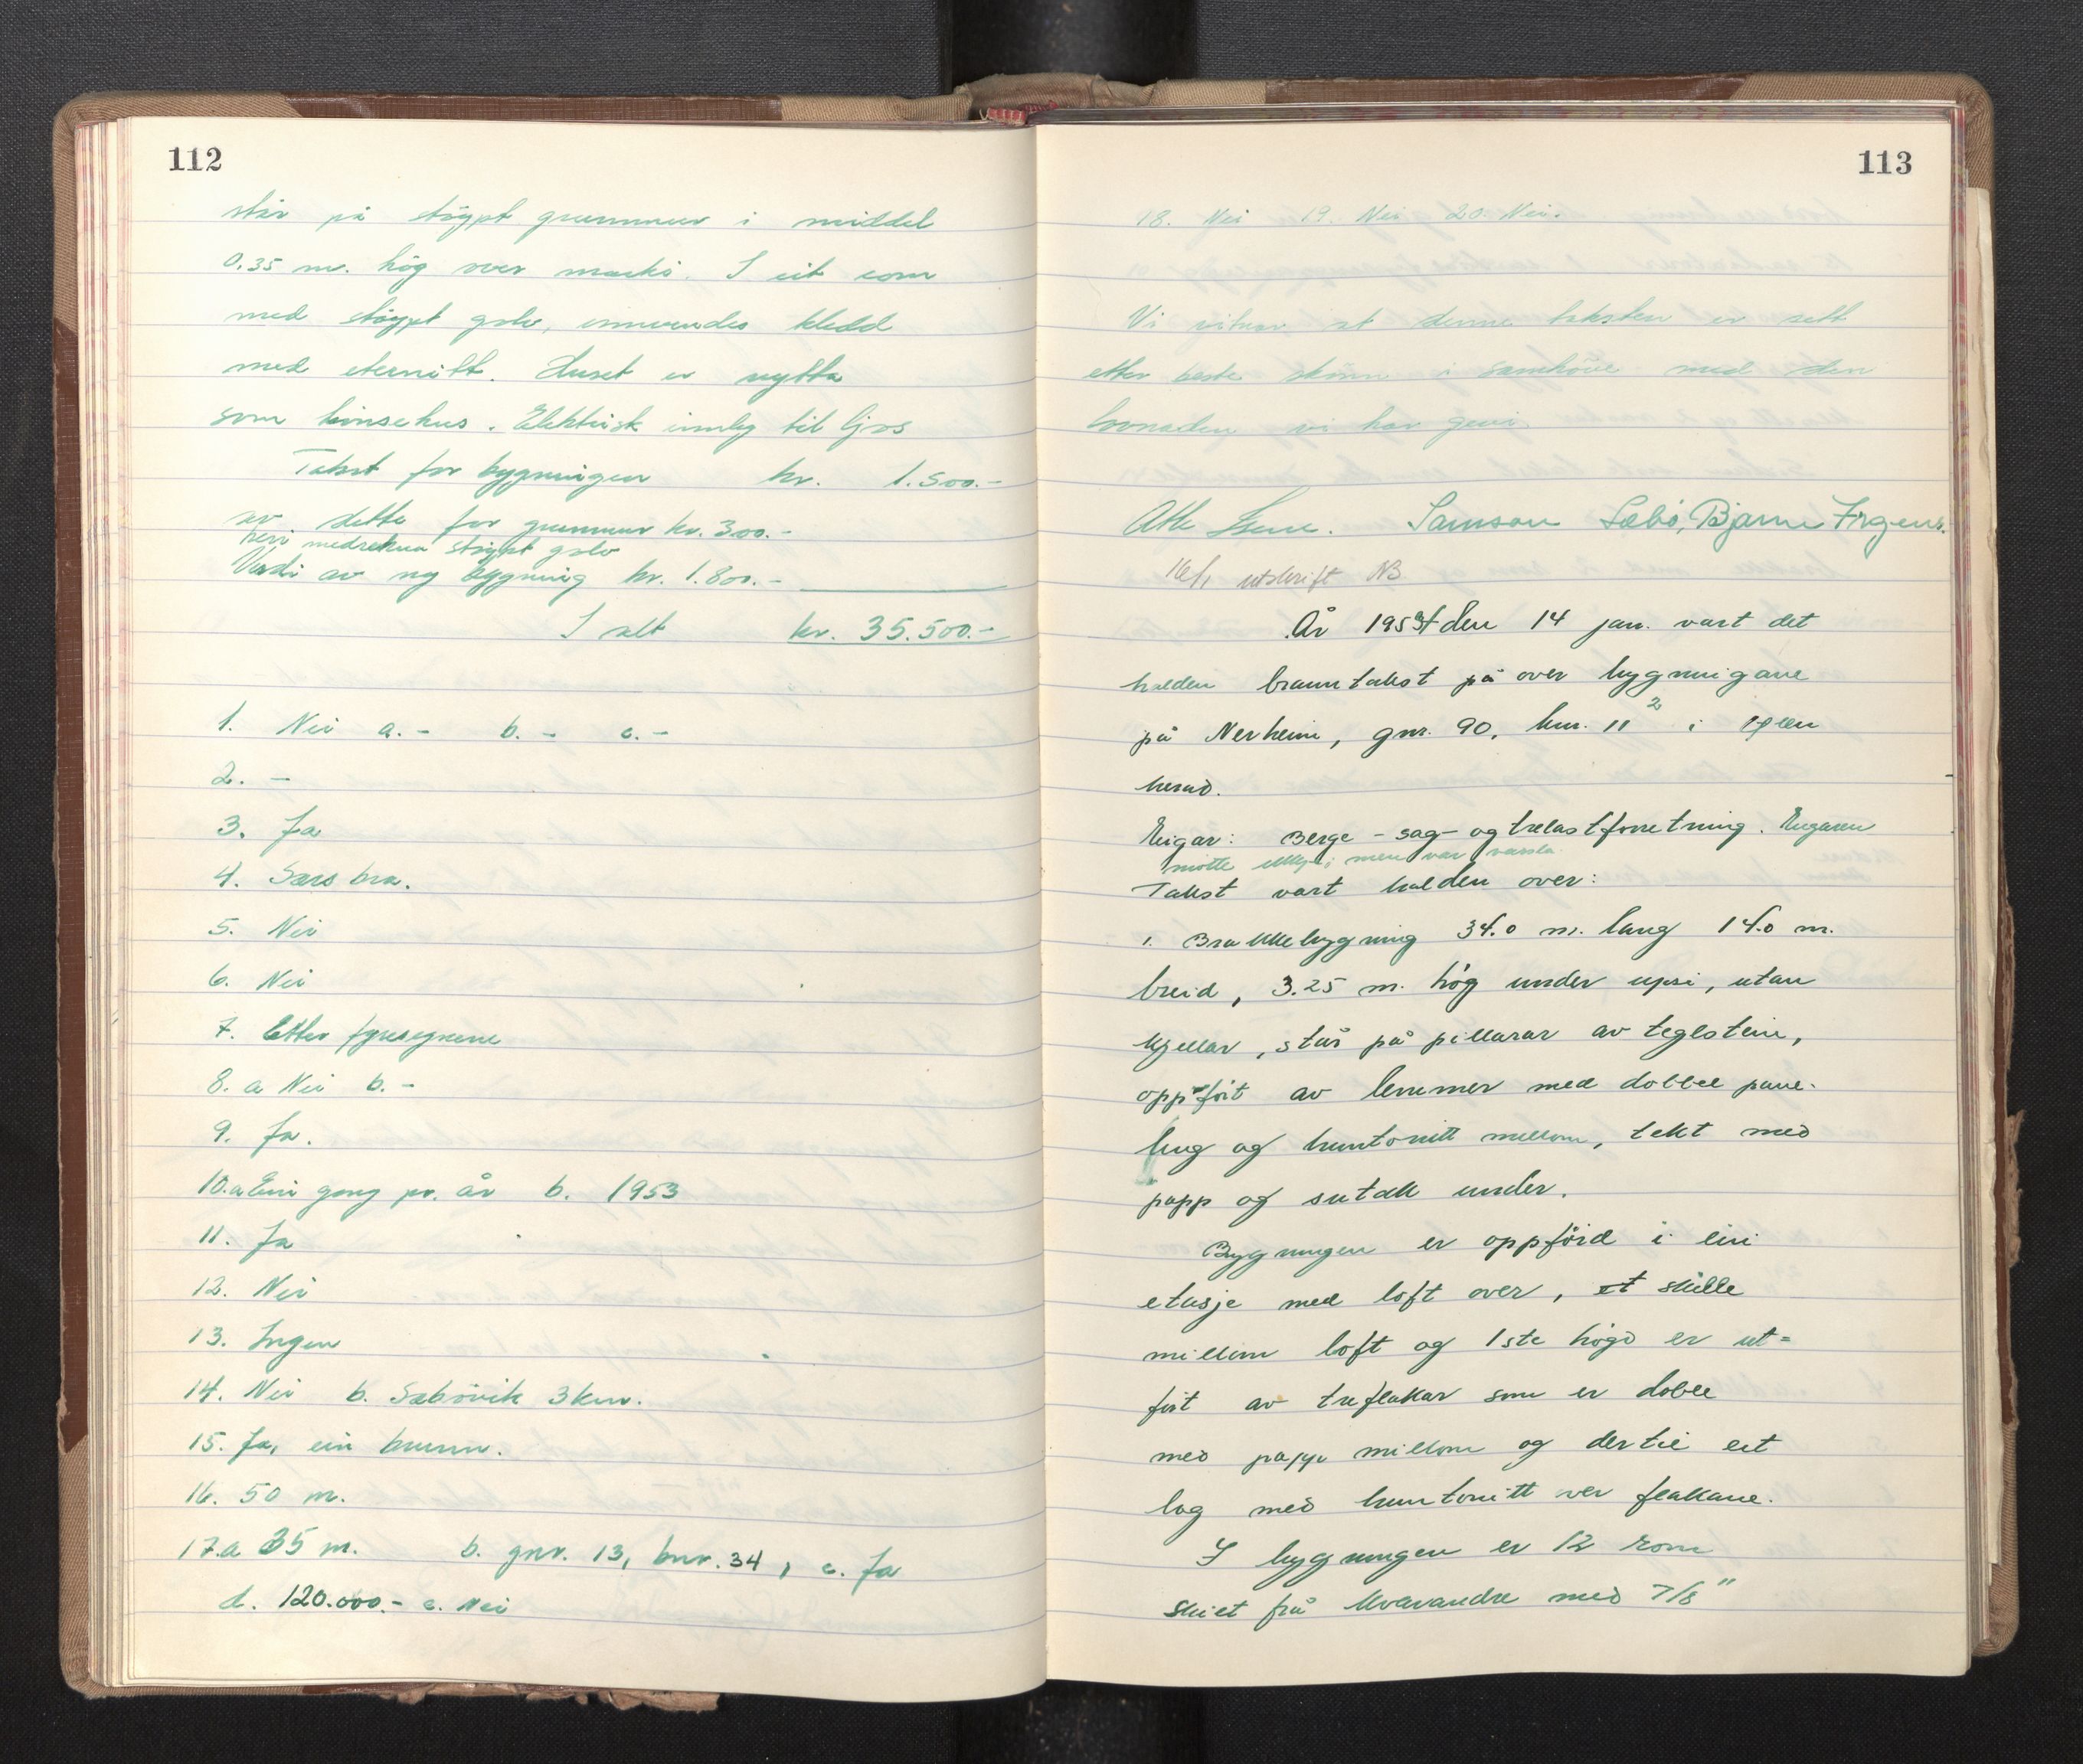 112
står på støypt grunnmur i middel
0.35 m. høg over marki. I eit rom
med støypt golv, innvendes kledd
med eternitt. Huset er nytta
som hønsehus. Elektrisk innlg til ljos
Takst for bygningen kr. 1.500.-
av dette for grunnmur kr. 300.-
heri medrekna støypt golv
Verdi av ny bygning kr. 1.800.-
I alt kr. 35.500.-
1. Nei a. - b. - c. -
2. -
3. Ja
4. Særs bra.
5. Nei
6. Nei
7. Etter fyresegnene
8. a Nei b. -
9. Ja.
10.a Ein gong pr. år b. 1953
11. Ja
12. Nei
13. Ingen
14. Nei b. Sæbövik 3 km.
15. Ja, ein brunn.
16. 50 m.
17.a 35 m. b. gnr. 13, bnr. 34, c. Ja
d. 120.000.- e. Nei
113
18. Nei 19. Nei 20. Nei.
Vi vitnar at denne taksten er sett
etter beste skönn i samhöve med den
lovnaden vi har gjevi.
Atle Samson Sæbö, Bjarne
16/1 utskrift NB
År 1954 den 14 jan. vart det
halden branntakst på over bygningane
på Nerheim, gnr. 90, bnr. 11 2 i Ølen
herad.
Eigar: Berge - sag- og trelastforretning. Eigaren
møtte ikkje, men var varsla.
Takst vart halden over:
1. Brakkebygning 34.0 m. lang 14.0 m.
breid, 3.25 m. høg under upsi, utan
kjellar, står på pillarar av teglstein,
oppført av lemmer med dobbel pane-
ling og huntonitt millom, tekt med
papp og sutak under.
Bygningen er oppførd i ein
etasje med loft over, et skille
millom loft og 1ste høgd er ut=
ført av treflakar som er doble
med papp millom og dertil eit
lag med huntonitt over flakane.
I bygningen er 12 rom
skilt frå kvarandre med 7/8"